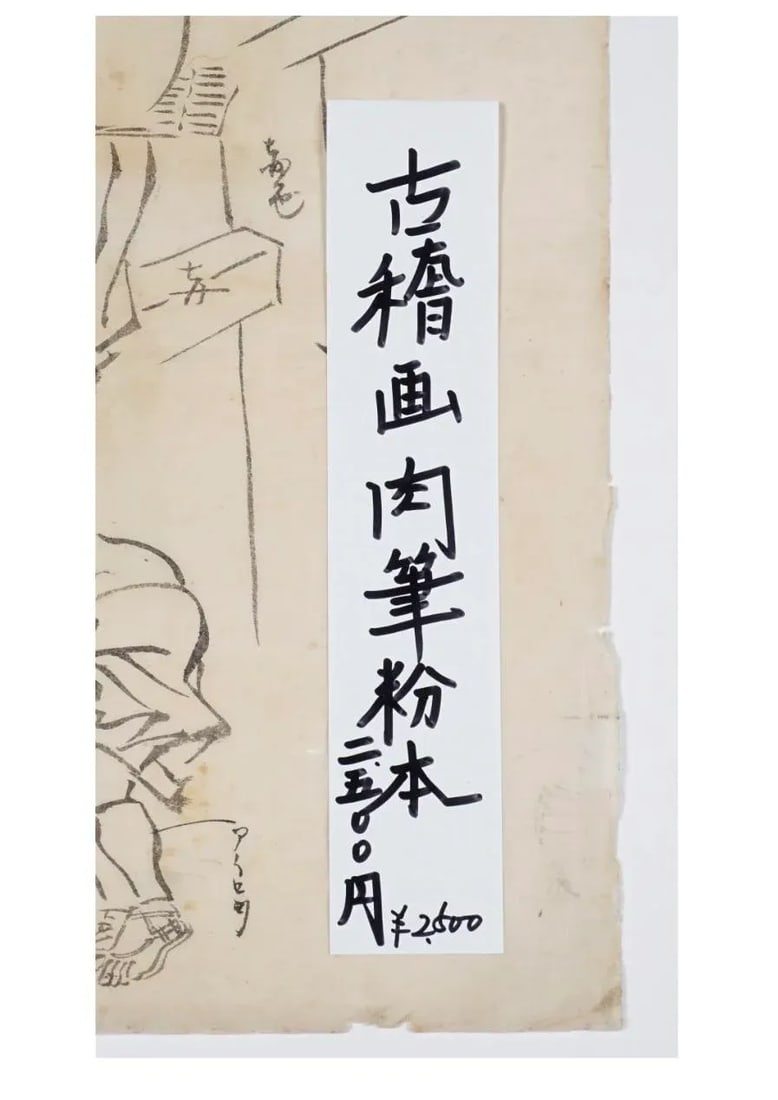 古稽画肉筆粉本
二、五〇〇円
¥2,500